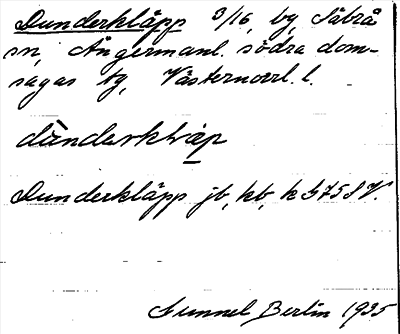 Dunderkläpp 3/16, by, Säbrå
sn, Ångermanl. södra dom-
sagas tg, Västernorrl. l.
dùndərkläp
Dunderkläpp jb, kb, k 575 SV.
Gunnel Berlin 1935